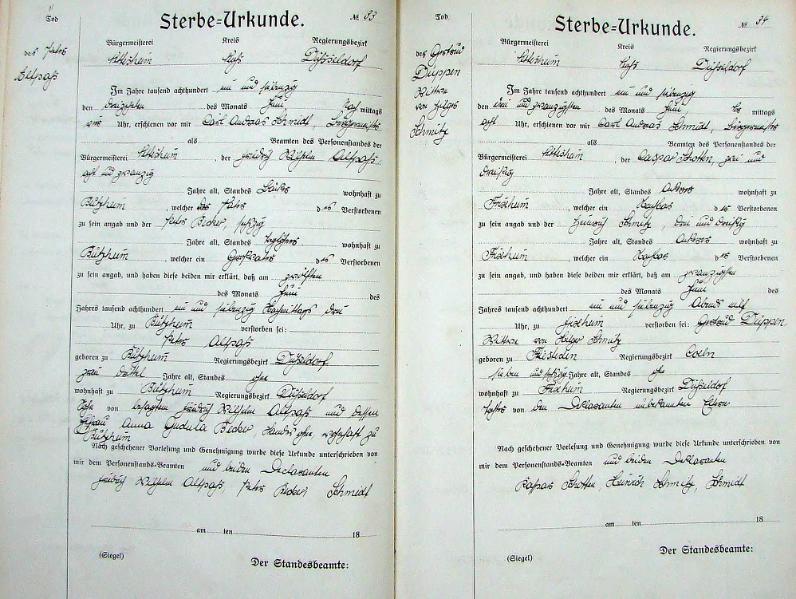 Tod
des Peters
Altpaß
Sterbe=Urkunde.
№ 33
Bürgermeisterei Kreis Regierungsbezirk
Neuß Düsseldorf
Im Jahre tausend achthundert ein und siebenzig
den dreizehnten des Monats Juni mittags
Uhr, erschienen vor mir Carl Andreas Schmidt, Bürgermeister
als Beamten des Personenstandes der
Bürgermeisterei , der Friedrich Wilhelm Altpaß
acht und zwanzig
Jahre alt, Standes wohnhaft zu
Bützheim, welcher Vater d es Verstorbenen
zu sein angab und der Peter Becker, sechzig
Jahre alt, Standes wohnhaft zu
Bützheim, welcher ein Großvater d es Verstorbenen
zu sein angab, und haben diese beiden mir erklärt, daß am zwölften
des Monats Juni des
Jahres tausend achthundert ein und siebenzig Nachmittags drei
Uhr, zu Bützheim verstorben sei:
Peter Altpaß
geboren zu Bützheim Regierungsbezirk Düsseldorf
drei viertel Jahre alt, Standes ohne
wohnhaft zu Bützheim Regierungsbezirk Düsseldorf
Sohn von besagtem Friedrich Wilhelm Altpaß und dessen
Ehefrau Anna Gudula Becker, Standes ohne, wohnhaft zu
Bützheim
Nach geschehener Vorlesung und Genehmigung wurde diese Urkunde unterschrieben von
mir dem Personenstands-Beamten und beiden Declaranten
Friedrich Wilhelm Altpaß, Peter Becker, Schmidt
am ten 18
(Siegel) Der Standesbeamte:
Tod
der Gertrud
Düppen
Wittwe
von Hilger
Schmitz
Sterbe=Urkunde.
№ 34
Bürgermeisterei Kreis Regierungsbezirk
Neuß Düsseldorf
Im Jahre tausend achthundert ein und siebenzig
den drei und zwanzigsten des Monats Juni mittags
acht Uhr, erschienen vor mir Carl Andreas Schmidt, Bürgermeister
als Beamten des Personenstandes der
Bürgermeisterei , der Caspar Schotten, zwei und
dreißig
Jahre alt, Standes Ackerer wohnhaft zu
Frixheim, welcher ein Nachbar d er Verstorbenen
zu sein angab und der Heinrich Schmitz, drei und dreißig
Jahre alt, Standes Ackerer wohnhaft zu
Frixheim, welcher ein Nachbar d er Verstorbenen
zu sein angab, und haben diese beiden mir erklärt, daß am zwanzigsten
des Monats Juni des
Jahres tausend achthundert ein und siebenzig Abends elf
Uhr, zu Frixheim verstorben sei: Gertrud Düppen
Wittwe von Hilger Schmitz
geboren zu Regierungsbezirk Coeln
sieben und Jahre alt, Standes ohne
wohnhaft zu Frixheim Regierungsbezirk Düsseldorf
Tochter von den Declaranten unbekannten Eltern
Nach geschehener Vorlesung und Genehmigung wurde diese Urkunde unterschrieben von
mir dem Personenstands-Beamten und beiden Declaranten
Kaspar Schotten Heinrich Schmitz, Schmidt
am ten 18
(Siegel) Der Standesbeamte: